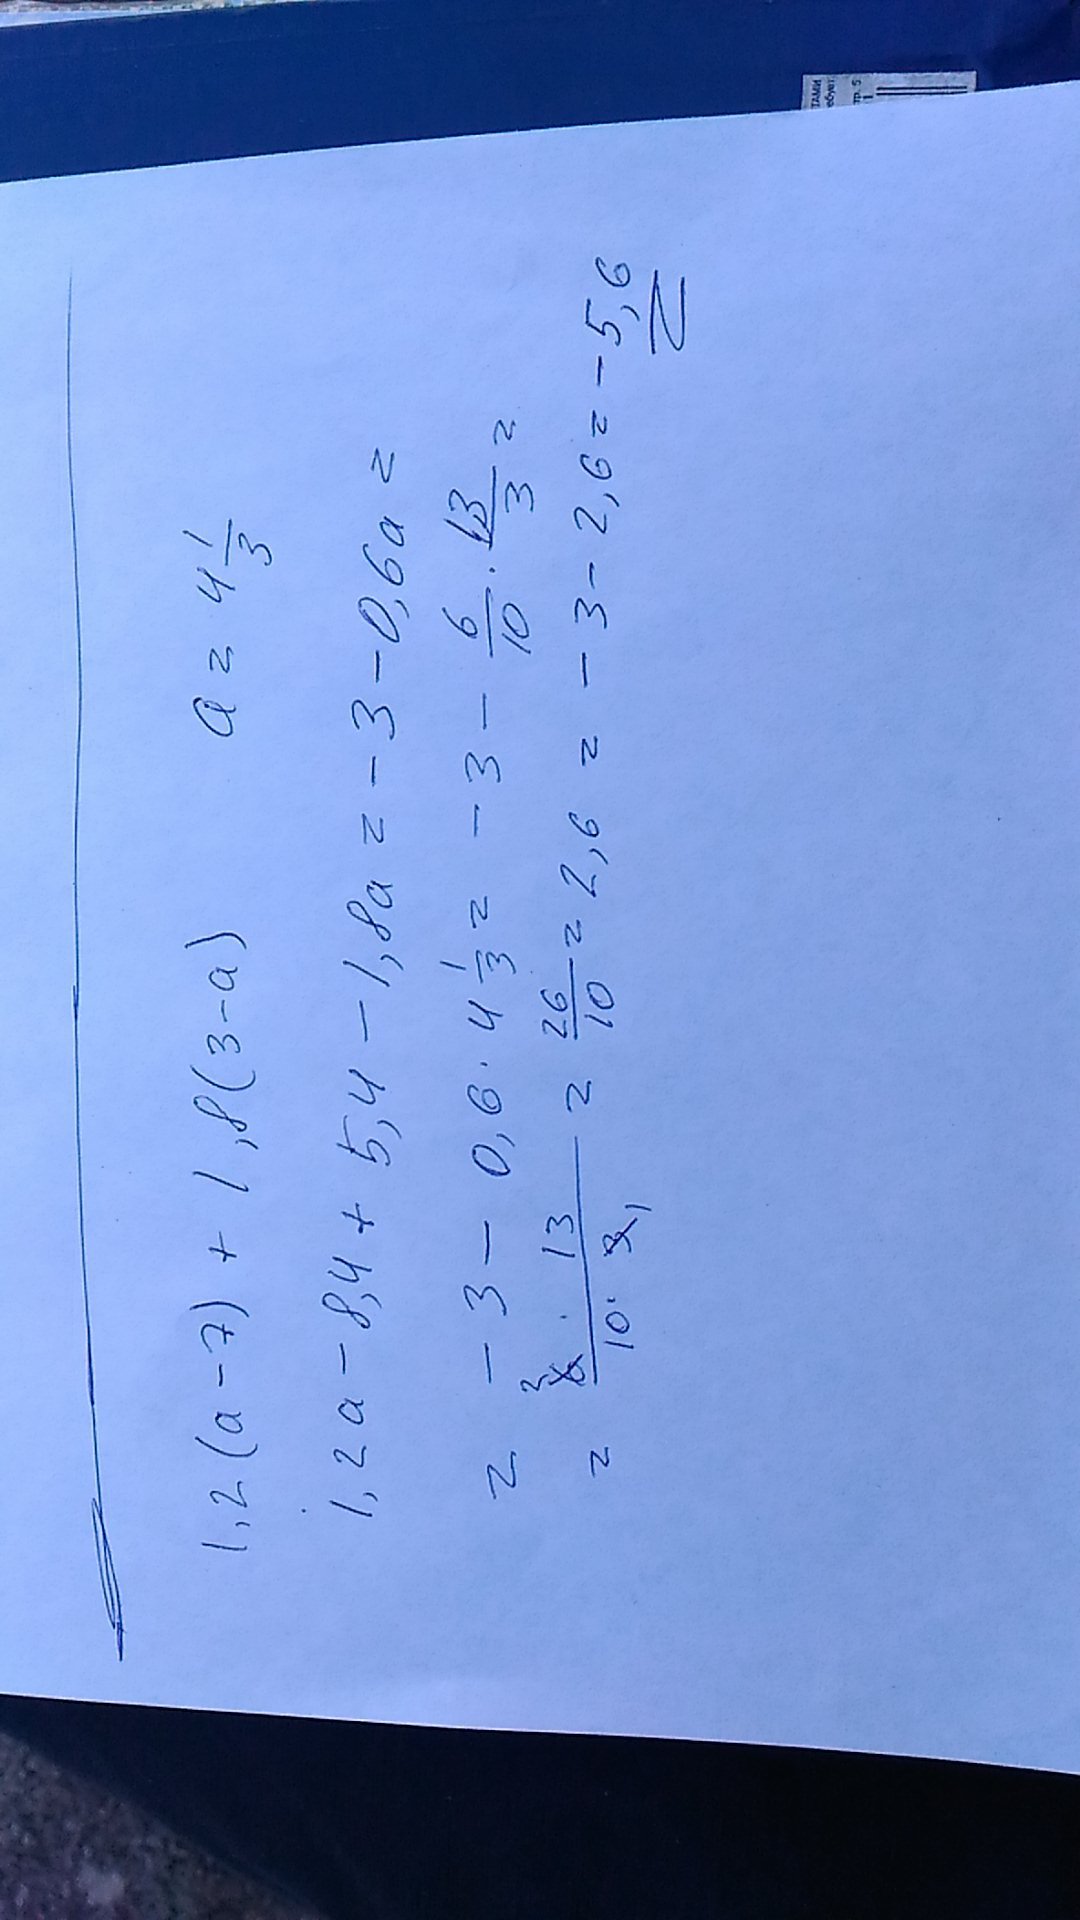 1,2(a-7)+1,8(3-a) a=4 1/3
1,2a-8,4+5,4-1,8a=-3-0,6a=
=-3-0,6·4 1/3=-3-6/10·13/3=
=6·13/10·3=26/10=2,6=-3-2,6=-5,6